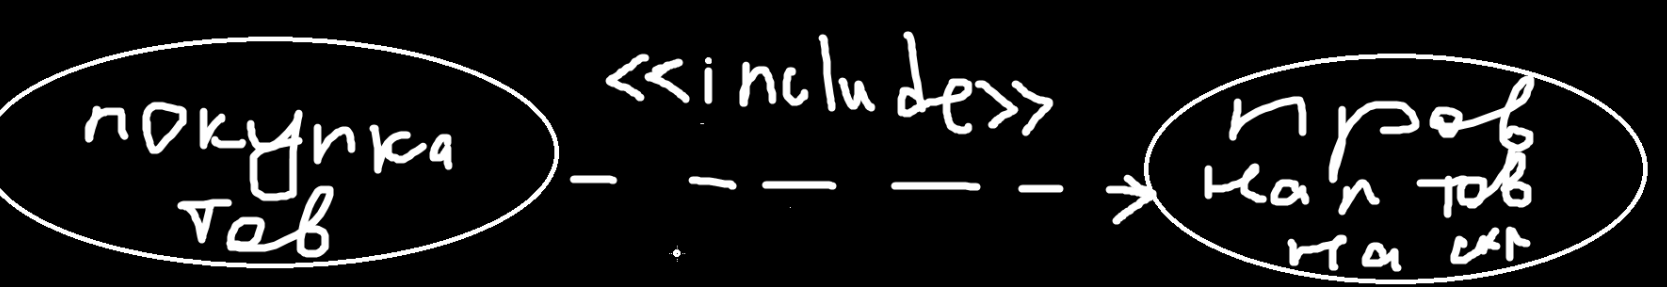 покупка
тов
<<include>>
пров
нал тов
на скл